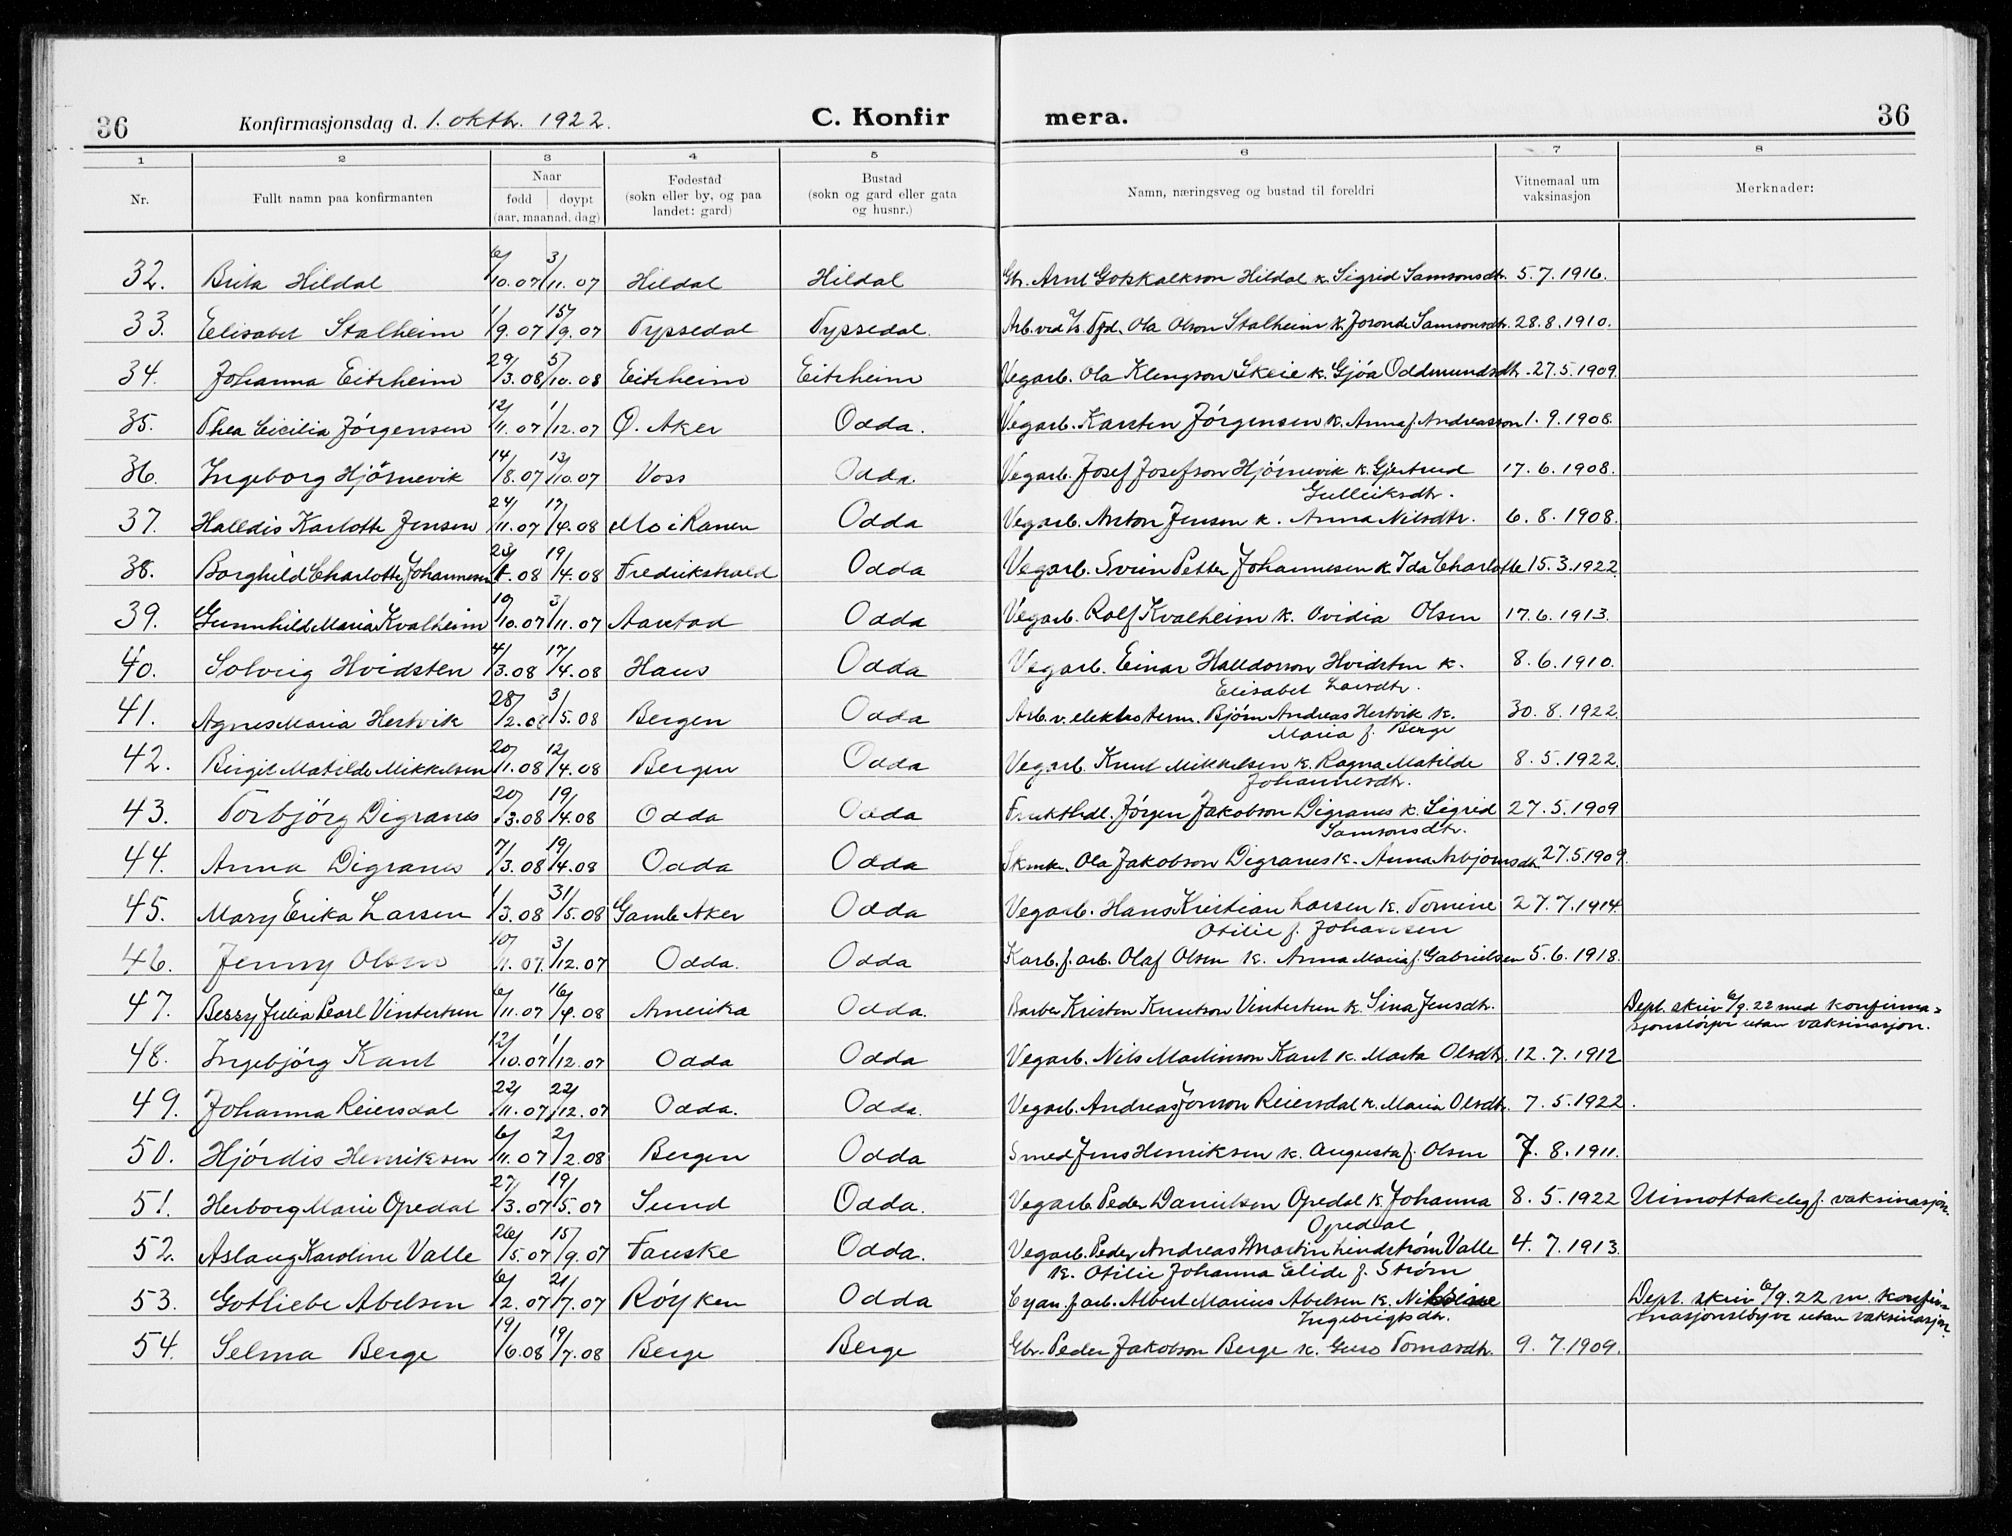 36 Konfirmasjonsdag d. 1. oktbr. 1922. C. Konfir mera. 36
1 2 3 4 5 6 7 8
Nr. Fullt namn paa konfirmanten Naar fødd døypt (aar, maanad, dag) Fødestad (sokn eller by, og paa landet: gard) Bustad (sokn og gard eller gata og husnr.) Namn, næringsveg og bustad til foreldri Vitnemaal um vaksinasjon Merknader:
32. Brita Hildal 6/10.07 3/11.07 Hildal Hildal Gbr. Arne Gotskalkson Hildal k. Sigrid Samsonsdtr. 5.7.1916.
33. Elisabet Stalheim 1/9.07 15/9.07 Tyssedal Tyssedal. Arb. ved A/s. Tyd. Ola Olson Stalheim k. Joronde Samsonsdtr. 28.8.1910.
34. Johanna Eitrheim 29/3.08 5/10.08 Eitrheim Eitrheim Vegarb. Ola Klengson Skeie k. Gjøa Oddmundsdtr. 27.5.1909.
35. Thea Cicilia Jørgensen 12/11.07 1/12.07 Ø. Aker Odda. Vegarb. Karsten Jørgensen k. Anna f. Andreasson 1.9.1908.
36. Ingeborg Hjørnevik 14/8.07 13/10.07 Voss Odda. Vegarb. Josef Josefson Hjørnevik k. Gjertrud 17.6.1908.
Gulleiksdtr.
37. Halldis Karlotte Jensen 24/11.07 17/4.08 Mo i Ranen Odda Vegarb. Anton Jensen k. Anna Nilsdtr. 6.8.1908.
38. Borghild Charlotte Johannesen 23/1.08 19/4.08 Fredrikshald Odda Vegarb. Svein Petter Johannesen k. Ida Charlotte 15.3.1922.
39. Gunnhild Maria Kvalheim 10/10.07 3/11.07 Aarstad Odda Vegarb. Rolf Kvalheim k. Ovidia Olsen 17.6.1913.
40. Solveig Hvidsten 4/3.08 17/4.08 Haus Odda Vegarb. Einar Halldorson Hvidsten k. 8.6.1910.
Elisabet Larsdtr.
41. Agnes Maria Hertvik 28/2.08 3/5.08 Bergen Odda Arb. v. elektro term. Bjørn Andreas Hertvik k. 30.8.1922.
Maria f. Berge
42. Birgit Matilde Mikkelsen 20/1.08 12/4.08 Bergen Odda Vegarb. Knut Mikkelsen k. Ragna Matilde 8.5.1922.
Johannesdtr.
43. Torbjørg Digranes 20/3.08 19/4.08 Odda Odda Frukthdl. Jørgen Jakobson Digranes k. Sigrid 27.5.1909
Samsonsdtr.
44. Anna Digranes 7/3.08 19/4.08 Odda Odda Skmk. Ola Jakobson Digranes k. Anna Asbjørnsdtr. 27.5.1909.
45. Mary Erika Larsen 1/3.08 31/5.08 Gamle Aker Odda Vegarb. Hans Kristian Larsen k. Tomine 27.7.1914.
Otilie f. Johansen
46. Jenny Olsen 10/11.07. 3/12.07 Odda. Odda Karb. f. arb. Olaf Olsen k. Anna Maria f. Gabrielsen 5.6.1918.
47. Bessy Julia Pearl Vintertun 6/11.07 16/4.08 Amerika Odda. Barber Kristen Knutson Vintertun k. Sina Jensdtr. Dept. skriv 6/9.22 med konfirma-
sjonsløyve utan vaksinasjon.
48. Ingebjørg Kant 12/10.07 1/12.07 Odda Odda Vegarb. Nils Martinson Kant k. Marta Olsdtr. 12.7.1912
49. Johanna Reiersdal 22/11.07 22/12.07 Odda. Odda. Vegarb. Andreas Jonson Reiersdal k. Maria Olsdtr. 7.5.1922.
50. Hjørdis Henriksen 6/11.07 2/2.08 Bergen Odda Smed Jens Henriksen k. Augusta f. Olsen 7.8.1911.
51. Herborg Marie Opedal 27/3.07 19/5.07 Sund Odda. Vegarb. Peder Danielson Opedal k. Johanna 8.5.1922 Uimottakeleg f. vaksinasjon.
Opedal
52. Aslaug Karoline Valle 26/5.07 15/9.07 Fauske Odda. Vegarb. Peder Andreas Martin Lindstrøm Valle 4.7.1913.
k. Otilie Johanna Elide f. Strøm
53. Gotliebe Abelsen 6/2.07 21/7.07 Røyken Odda Cyan. f. arb. Albert Marius Abelsen k. Nikoline Dept. skriv 6/9.22 m. konfir-
Ingebrigtsdtr. masjonsløyve utan vaksinasjon.
54. Selma Berge 19/6.08 19/7.08 Berge Berge Gbr. Peder Jakobson Berge k. Guro Tomasdtr. 9.7.1909.